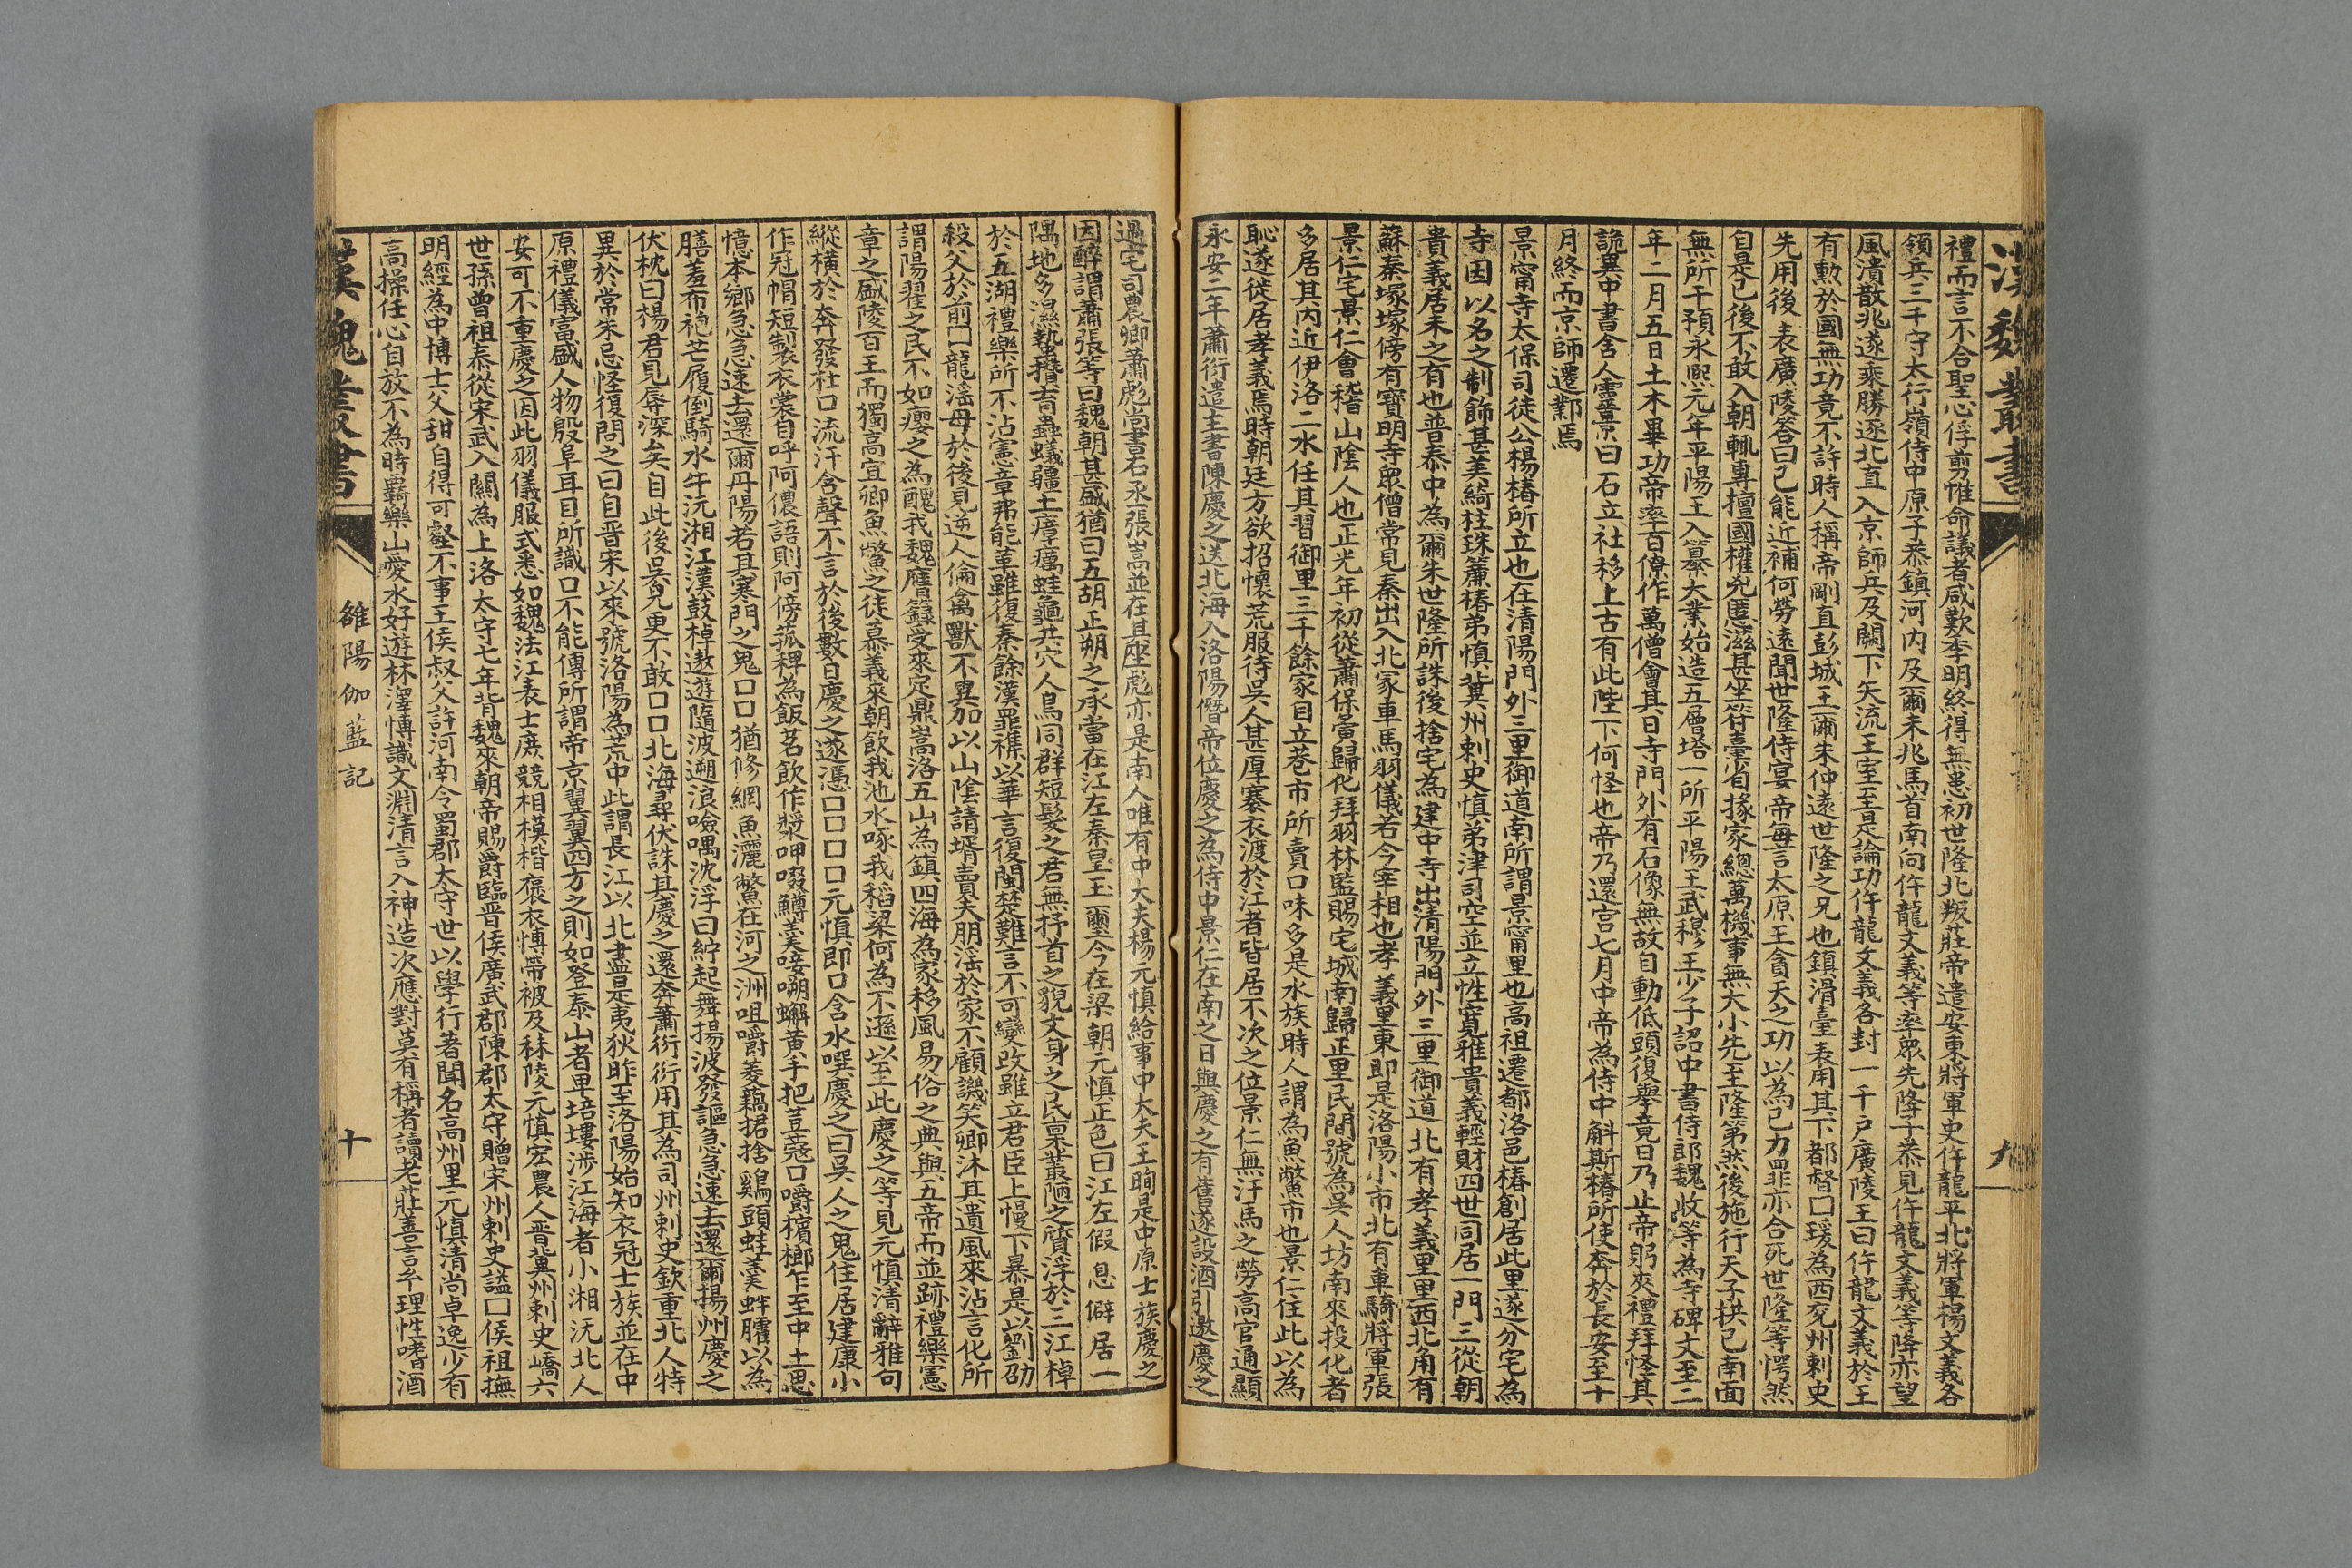 漢魏叢書
九
禮而言不合聖心俘剪惟命議者咸歎季明終得無患初世隆北叛莊帝遣安東將軍史仵龍平北將軍楊文義各
領兵三千守太行嶺侍中原子恭鎮河內及爾朱兆馬首南向仵龍文義等率眾先降子恭見仵龍文義等降亦望
風潰散兆遂乘勝逐北直入京師兵及闕下矢流王室至是論功仵龍文義各封一千戶廣陵王曰仵龍文義於王
有勳於國無功竟不許時人稱帝剛直彭城王爾朱仲遠世隆之兄也鎮滑臺表用其下都督口瑗為西兖州刺史
先用後表廣陵答曰已能近補何勞遠聞世隆侍宴帝每言太原王貪天之功以為己力罪亦合死世隆等愕然
自是已後不敢入朝輒專擅國權兇慝滋甚坐符臺省掾家總萬機事無大小先至隆第然後施行天子拱己南面
無所干預永熙元年平陽王入纂大業始造五層塔一所平陽王武穆王少子詔中書侍郎魏收等為寺碑文至二
年二月五日土木畢功帝率百僚作萬僧會其日寺門外有石像無故自動低頭復舉竟日乃止帝躬來禮拜怪其
詭異中書舍人盧景曰石立社移上古有此陛下何怪也帝乃還宮七月中帝為侍中斛斯椿所使奔於長安至十
月終而京師遷鄴焉
景甯寺太保司徒公楊椿所立也在清陽門外三里御道南所謂景甯里也高祖遷都洛邑椿創居此里遂分宅為
寺因以名之制飾甚美綺柱珠簾椿弟慎冀州刺史慎弟津司空並立性寬雅貴義輕財四世同居一門三從朝
貴義居未之有也普泰中為爾朱世隆所誅後捨宅為建中寺出清陽門外三里御道北有孝義里里西北角有
蘇秦塚塚傍有寶明寺眾僧常見秦出入北冢車馬羽儀若今宰相也孝義里東即是洛陽小市北有車騎將軍張
景仁宅景仁會稽山陰人也正光年初從蕭保夤歸化拜羽林監賜宅城南歸正里民間號為吳人坊南來投化者
多居其內近伊洛二水任其習御里三千餘家自立巷市所賣口味多是水族時人謂為魚鱉市也景仁住此以為
恥遂從居孝義焉時朝廷方欲招懷荒服待吳人甚厚褰衣渡於江者皆居不次之位景仁無汗馬之勞高官通顯
永安二年蕭衍遣主書陳慶之送北海入洛陽僭帝位慶之為侍中景仁在南之日與慶之有舊遂設酒引邀慶之
過宅司農卿蕭彪尚書右丞張嵩並在其座彪亦是南人唯有中大夫楊元慎給事中大夫王眴是中原士族慶之
因醉謂蕭張等曰魏朝甚盛猶曰五胡正朔之承當在江左秦皇玉璽今在梁朝元慎正色曰江左假息僻居一
隅地多濕蟄攢育蟲蟻疆土瘴癘蛙黽共穴人鳥同群短髮之君無杼首之貌文身之民稟叢陋之質浮於三江棹
於五湖禮樂所不沾憲章弗能革雖復秦餘漢罪雜以華言復閩楚難言不可變改雖立君臣上慢下暴是以劉劭
殺父於前口龍淫母於後見逆人倫禽獸不異加以山陰請壻賣夫朋淫於家不顧譏笑卿沐其遺風未沾言化所
謂陽翟之民不如癭之為醜我魏膺籙受來定鼎嵩洛五山為鎮四海為家移風易俗之典與五帝而並跡禮樂憲
章之盛陵百王而獨高宜卿魚鱉之徒慕義來朝飲我池水啄我稻粱何為不遜以至此慶之等見元慎清辭雅句
縱橫於奔發杜口流汗含聲不言於後數日慶之遂憑口口口口元慎即口含水噀慶之曰吳人之鬼住居建康小
作冠帽短製衣裳自呼阿儂語則阿傍菰稗為飯茗飲作漿呷啜鱒羹唼嗍蠏黃手把荳蔻口嚼檳榔乍至中土思
憶本鄉急急速去還爾丹陽若其寒門之鬼口口猶修網魚漉鱉在河之洲咀嚼菱藕捃捨鷄頭蛙羹蚌臛以為
膳羞布袍芒履倒騎水牛沅湘江漢鼓棹遨遊隨波遡浪噞喁沈浮曰紵起舞揚波發謳急急速去還爾揚州慶之
伏枕曰楊君見辱深矣自此後吳兒更不敢口口北海尋伏誅其慶之還奔蕭衍衍用其為司州刺史欽重北人特
異於常朱忌怪復問之曰自晉宋以來號洛陽為荒中此謂長江以北盡是夷狄昨至洛陽始知衣冠士族並在中
原禮儀富盛人物殷阜耳目所識口不能傳所謂帝京翼翼四方之則如登泰山者卑培塿涉江海者小湘沅北人
安可不重慶之因此羽儀服式悉如魏法江表士庶競相模楷褒衣博帶被及秣陵元慎宏農人晉冀州刺史嶠六
世孫曾祖泰從宋武入關為上洛太守七年背魏來朝帝賜爵臨晉侯廣武郡陳郡太守贈宋州刺史諡口侯祖撫
明經為中博士父甜自得可壑不事王侯叔父許河南令蜀郡太守世以學行著聞名高州里元慎清尚卓逸少有
高操任心自放不為時羈樂山愛水好遊林澤博識文淵清言入神造次應對莫有稱者讀老莊善言𤣥理性嗜酒
漢魏叢書
雒陽伽藍記
十